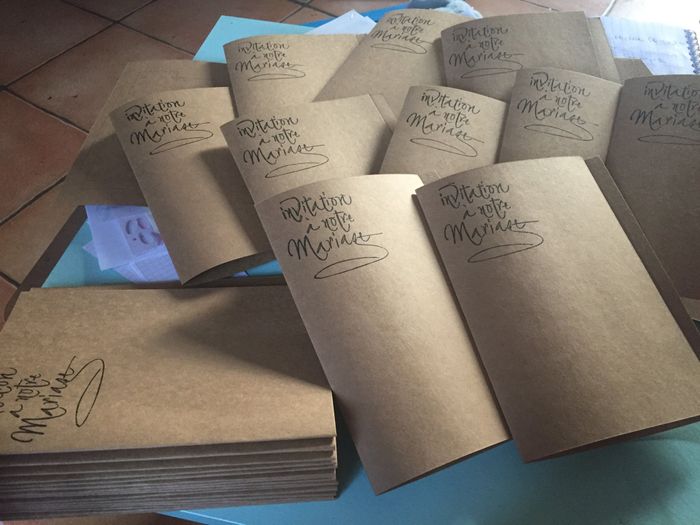 invitation
à notre
Mariage
invitation
à notre
Mariage
invitation
à notre
Mariage
invitation
à notre
Mariage
invitation
à notre
Mariage
invitation
à notre
Mariage
invitation
à notre
Mariage
invitation
à notre
Mariage
invitation
à notre
Mariage
invitation
à notre
Mariage
à notre
Mariage